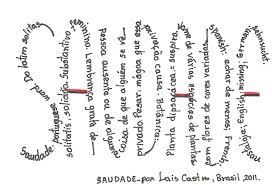 Saudade: portuguese word Do latim solitas,
solitatis, solidão. Substantivo
feminino. Lembrança grata de
pessoa ausente ou de alguma
causa de que alguém se vê
privado. Pesar, mágoa que essa
privação causa. Botânica:
Planta dipsacácea = suspiro.
Nome de várias espécies de plantas
com flores de cores variadas.
Spanish: echar de menos; French:
English: missing; German: sehnsucht
SAUDADE - por Lais Castro, Brasil, 2011.